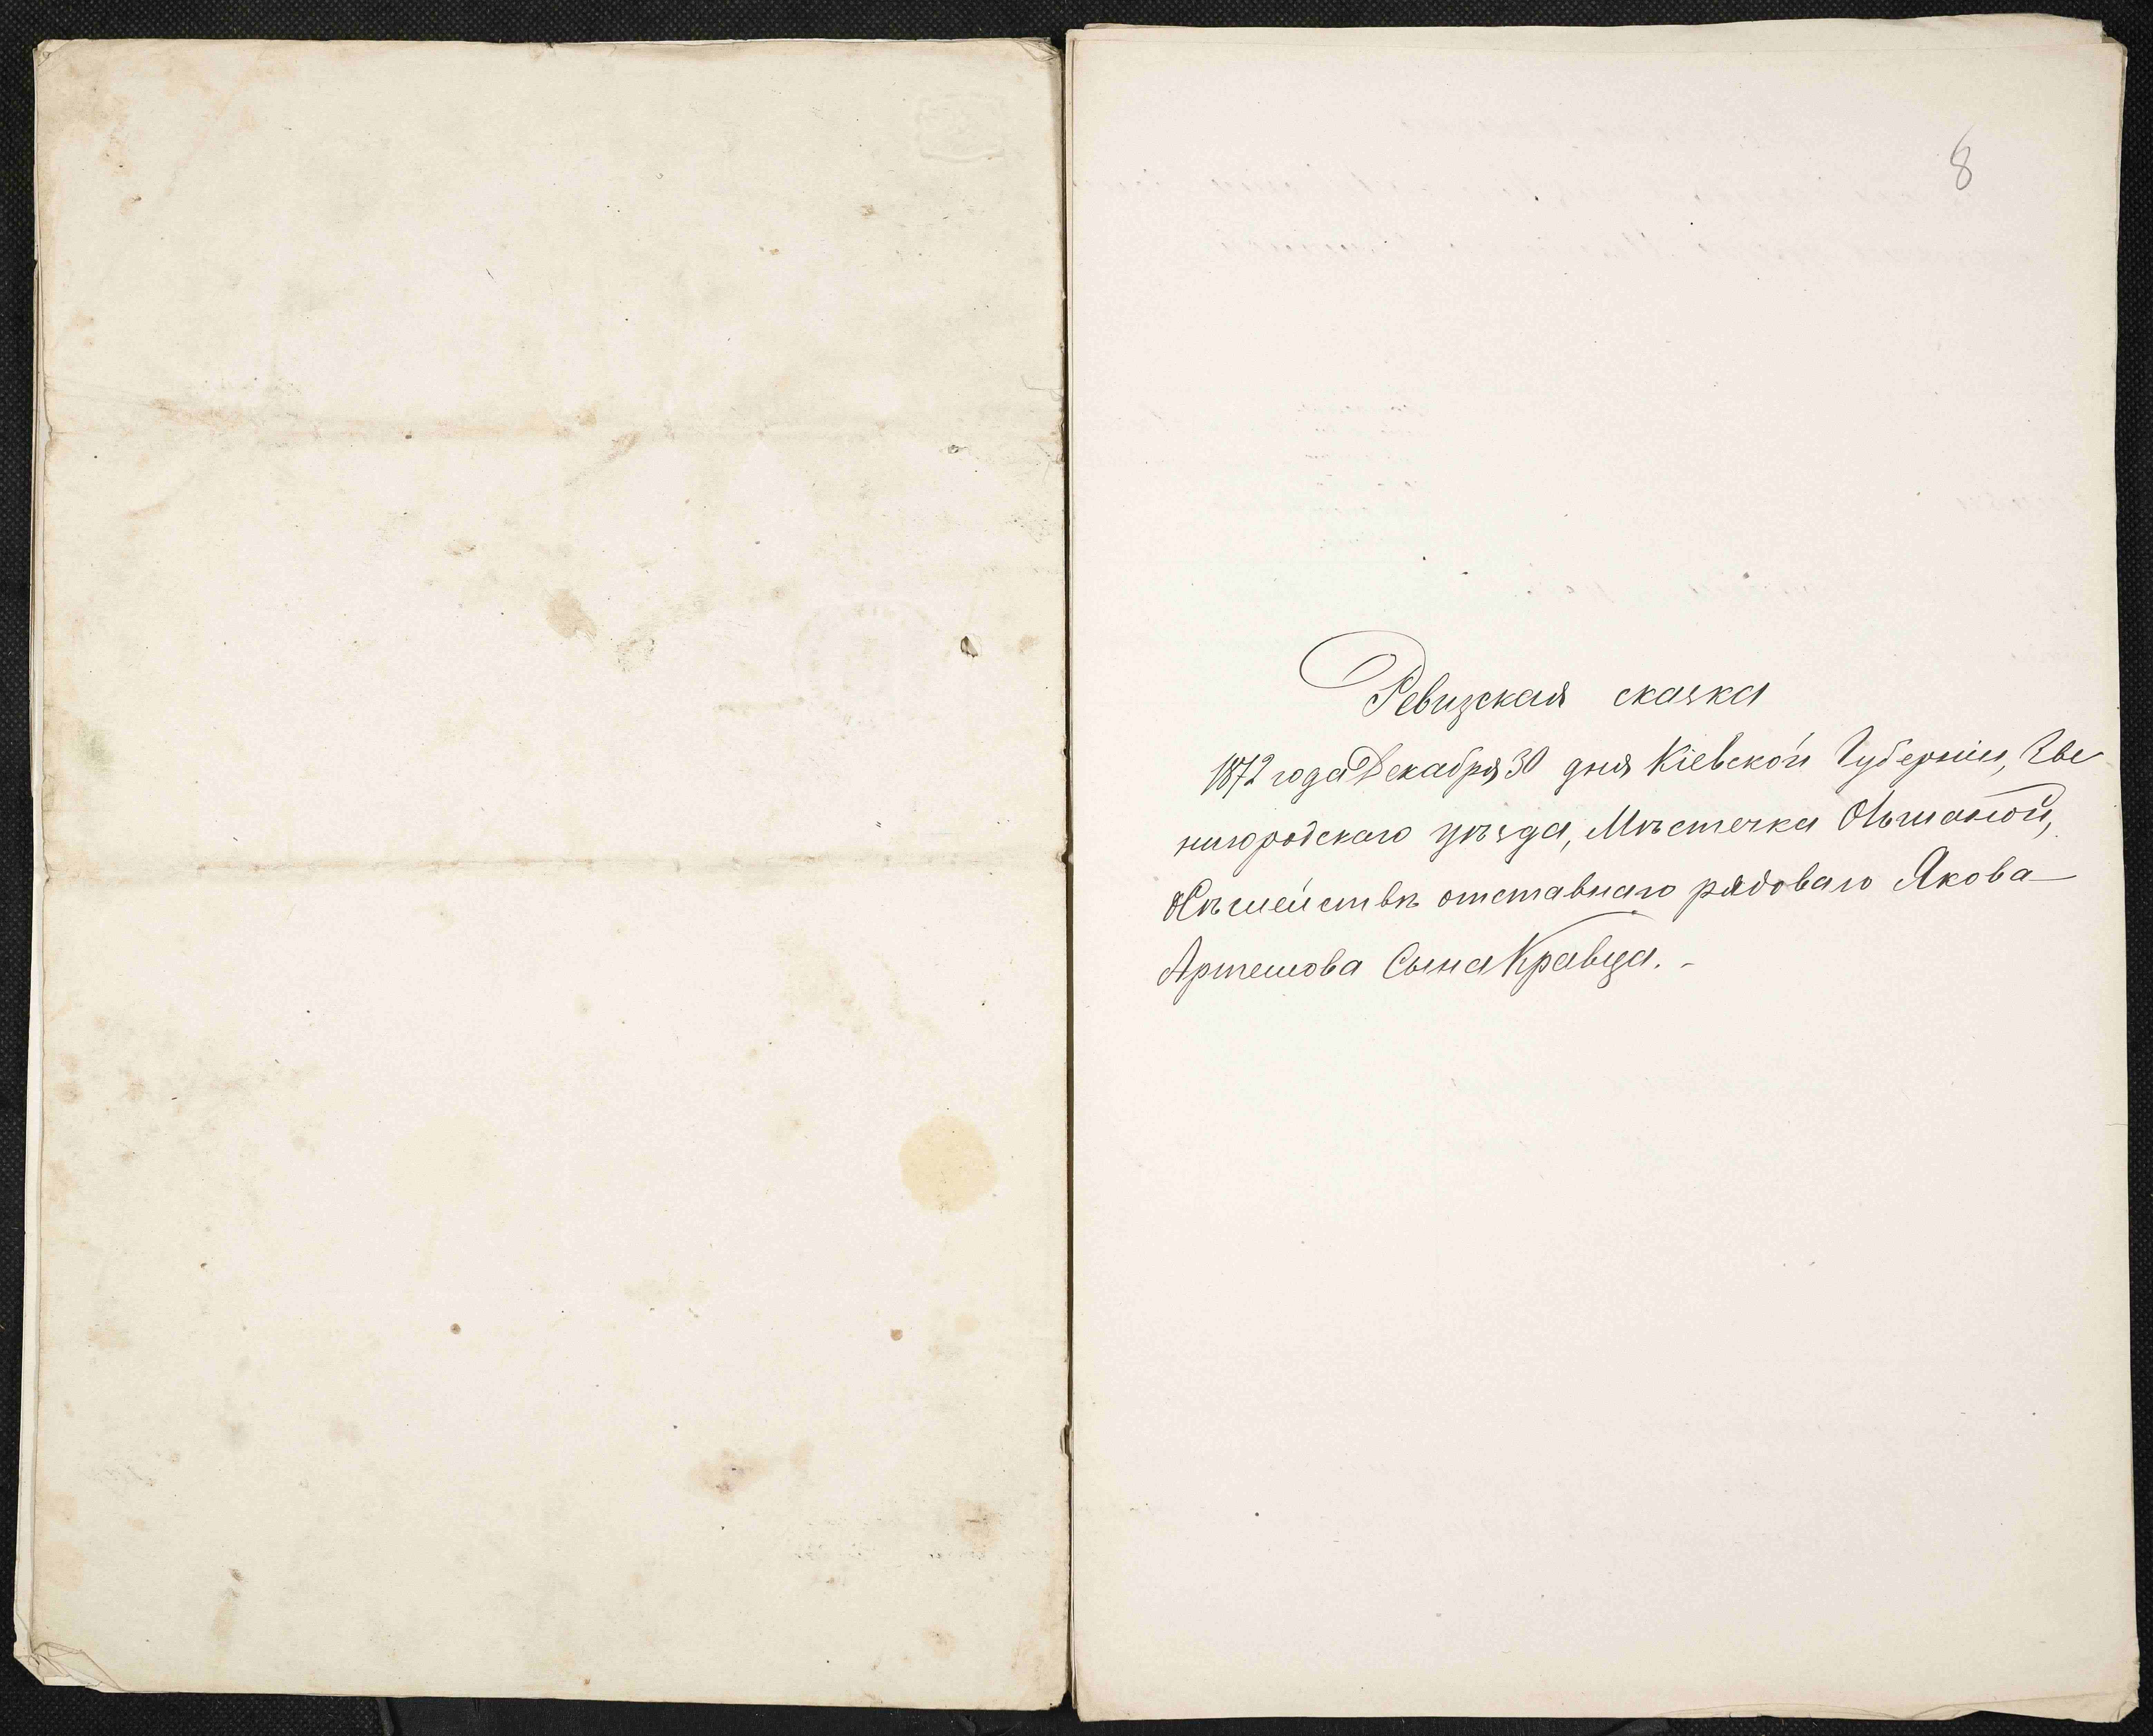 8
Ревизская сказка
1872 года Декабря 30 дня Кіевской Губерніи, Зве
нигородскаго уѣзда, Мѣстечка Ольшаной,
о Сѣмействѣ отставнаго рядоваго Якова
Артемова Сына Кравца. -